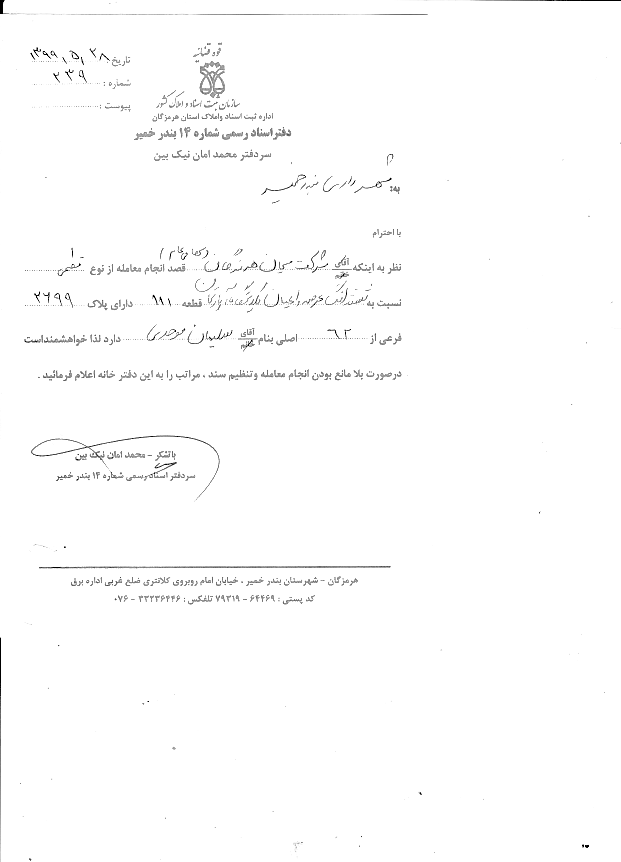 قوه قضائیه
تاریخ ۱۳۹۹,۵,۲۸
شماره : ۲۳۹
پیوست :
سازمان ثبت اسناد و املاک کشور
اداره ثبت اسناد واملاک استان هرمزگان
دفتراسناد رسمی شماره ۱۴ بندر خمیر
سردفتر محمد امان نیک بین
به: شهرداری بندر خمیر
با احترام
نظر به اینکه آقای شرکت هرمزگان قصد انجام معامله از نوع قطعی
نسبت به عرصه و اعیان قطعه ۱۱۱ دارای پلاک ۲۶۹۹
فرعی از ۶۲ اصلی بنام آقای سلیمان موحدی دارد لذا خواهشمنداست
درصورت بلا مانع بودن انجام معامله وتنظیم سند ، مراتب را به این دفتر خانه اعلام فرمائید .
باتشکر - محمد امان نیک بین
سردفتر اسناد رسمی شماره ۱۴ بندر خمیر
هرمزگان - شهرستان بندر خمیر ، خیابان امام روبروی کلانتری ضلع غربی اداره برق
کد پستی : ۶۴۴۶۹ - ۷۹۳۱۹ تلفکس : ۳۳۲۳۶۴۴۶ - ۰۷۶